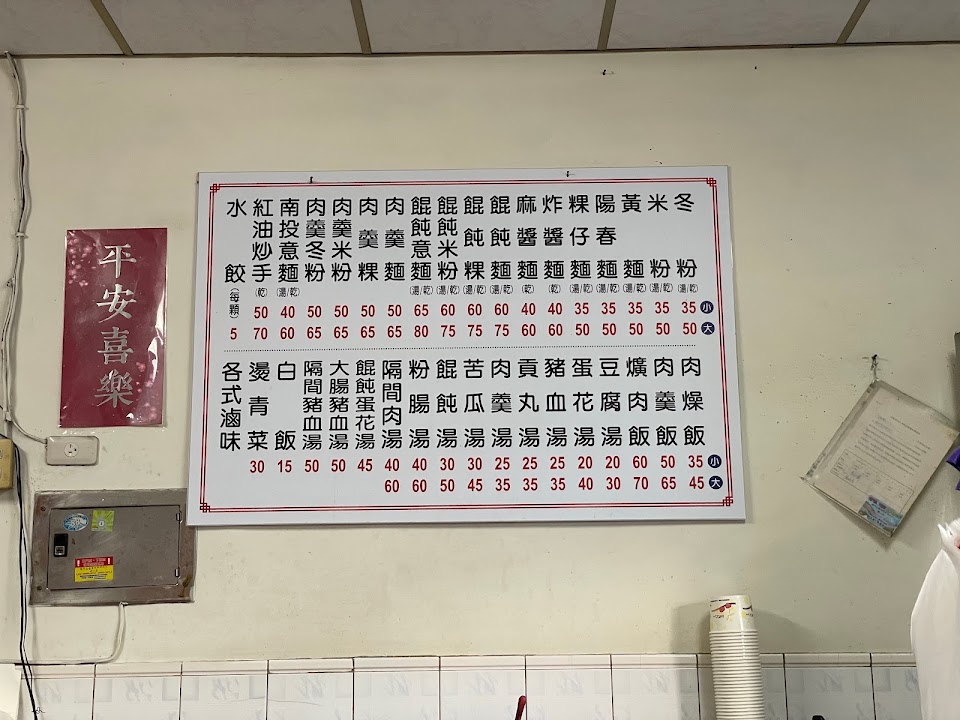 小 大
冬粉(湯/乾) 35 50
米粉(湯/乾) 35 50
黃麵(湯/乾) 35 50
陽春麵(湯/乾) 35 50
粿仔麵(湯/乾) 35 50
炸醬麵(乾) 40 60
麻醬麵(乾) 40 60
餛飩麵(湯/乾) 60 75
餛飩粿(湯/乾) 60 75
餛飩米粉(湯/乾) 60 75
餛飩意麵(湯/乾) 65 80
肉羹麵 50 65
肉羹粿 50 65
肉羹米粉 50 65
肉羹冬粉 50 65
南投意麵(湯/乾) 40 60
紅油炒手(乾) 50 70
水餃(每顆) 5
小 大
肉燥飯 35 45
肉羹飯 50 65
爌肉飯 60 70
豆腐湯 20 30
蛋花湯 20 40
豬血湯 25 35
貢丸湯 25 35
肉羹湯 25 35
苦瓜湯 30 45
餛飩湯 30 50
粉腸湯 40 60
隔間肉湯 40 60
餛飩蛋花湯 45
大腸豬血湯 50
隔間豬血湯 50
白飯 15
燙青菜 30
各式滷味
平安喜樂